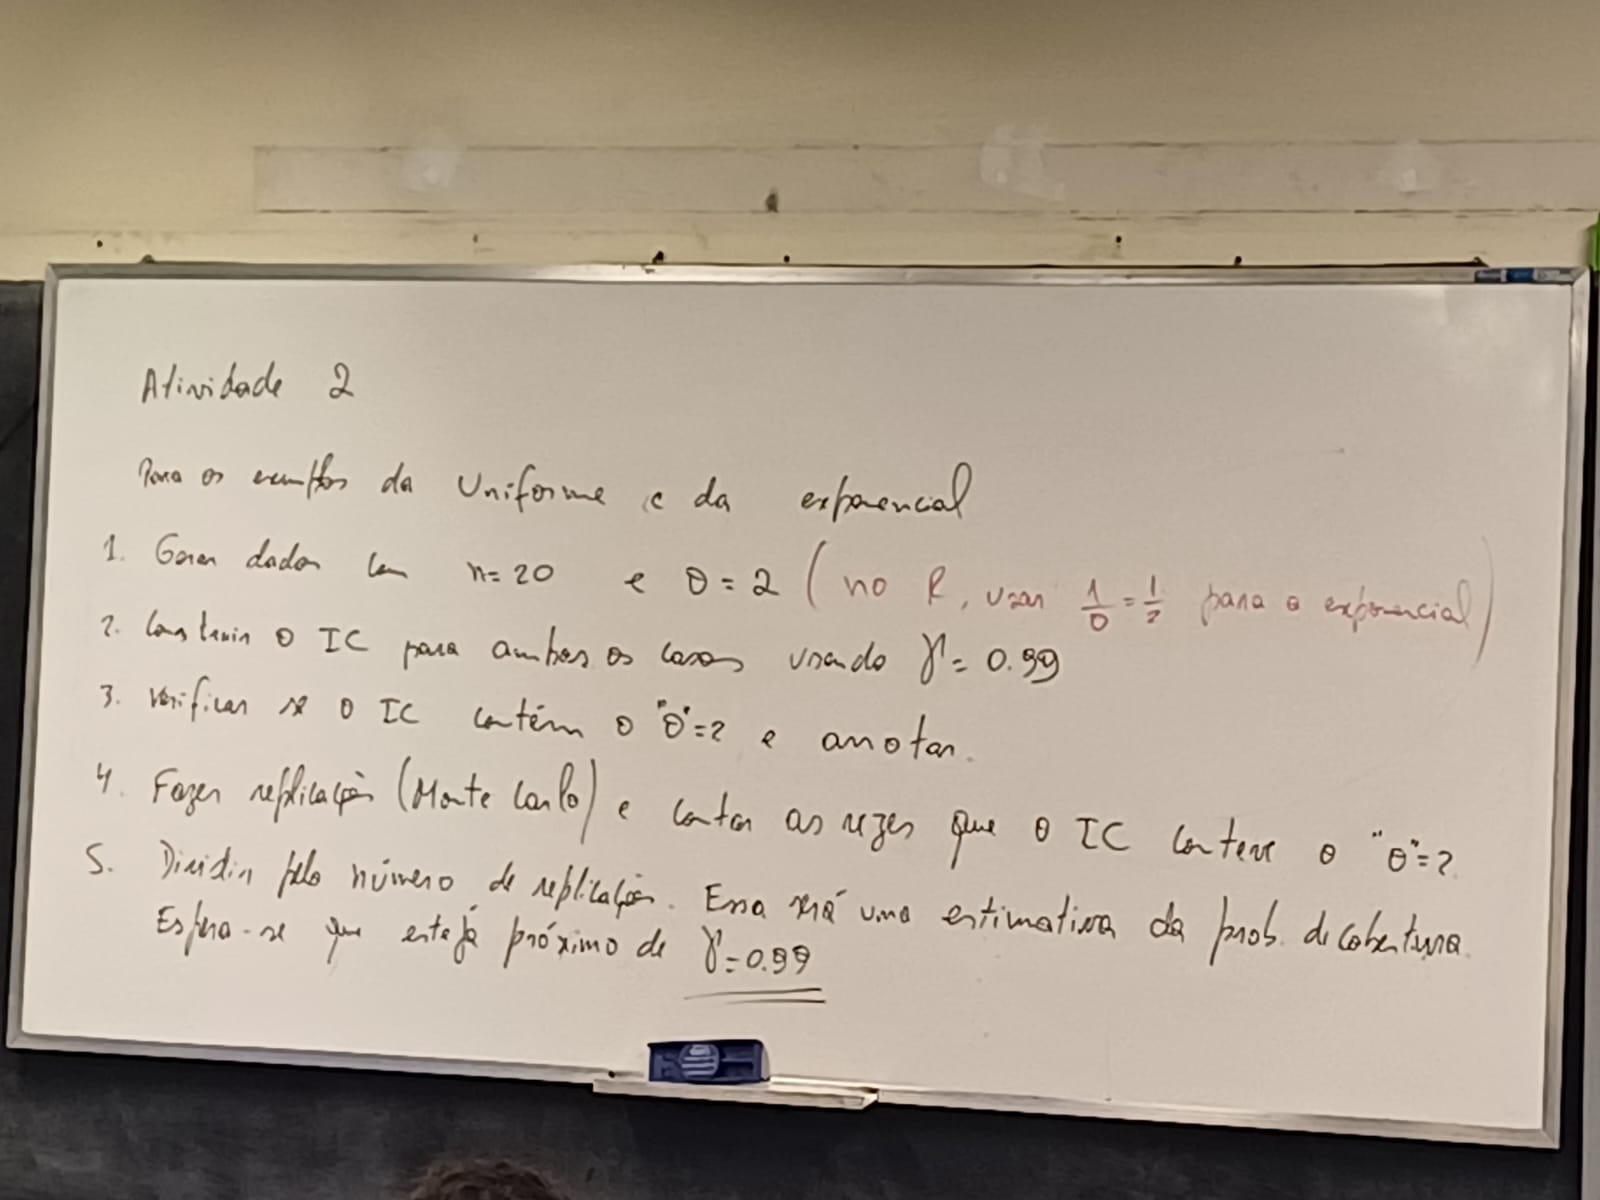 Atividade 2
Para os exemplos da Uniforme e da exponencial
1. Gerar dados com n=20 e θ=2 (no R, usar 1/θ = 1/2 para a exponencial)
2. Construir o IC para ambos os casos usando γ=0.99
3. Verificar se o IC contém o "θ"=2 e anotar.
4. Fazer replicação (Monte Carlo) e contar as vezes que o IC conteve o "θ"=2
5. Dividir pelo número de replicações. Essa será uma estimativa da prob. de cobertura.
Espera-se que esteja próximo de γ=0.99